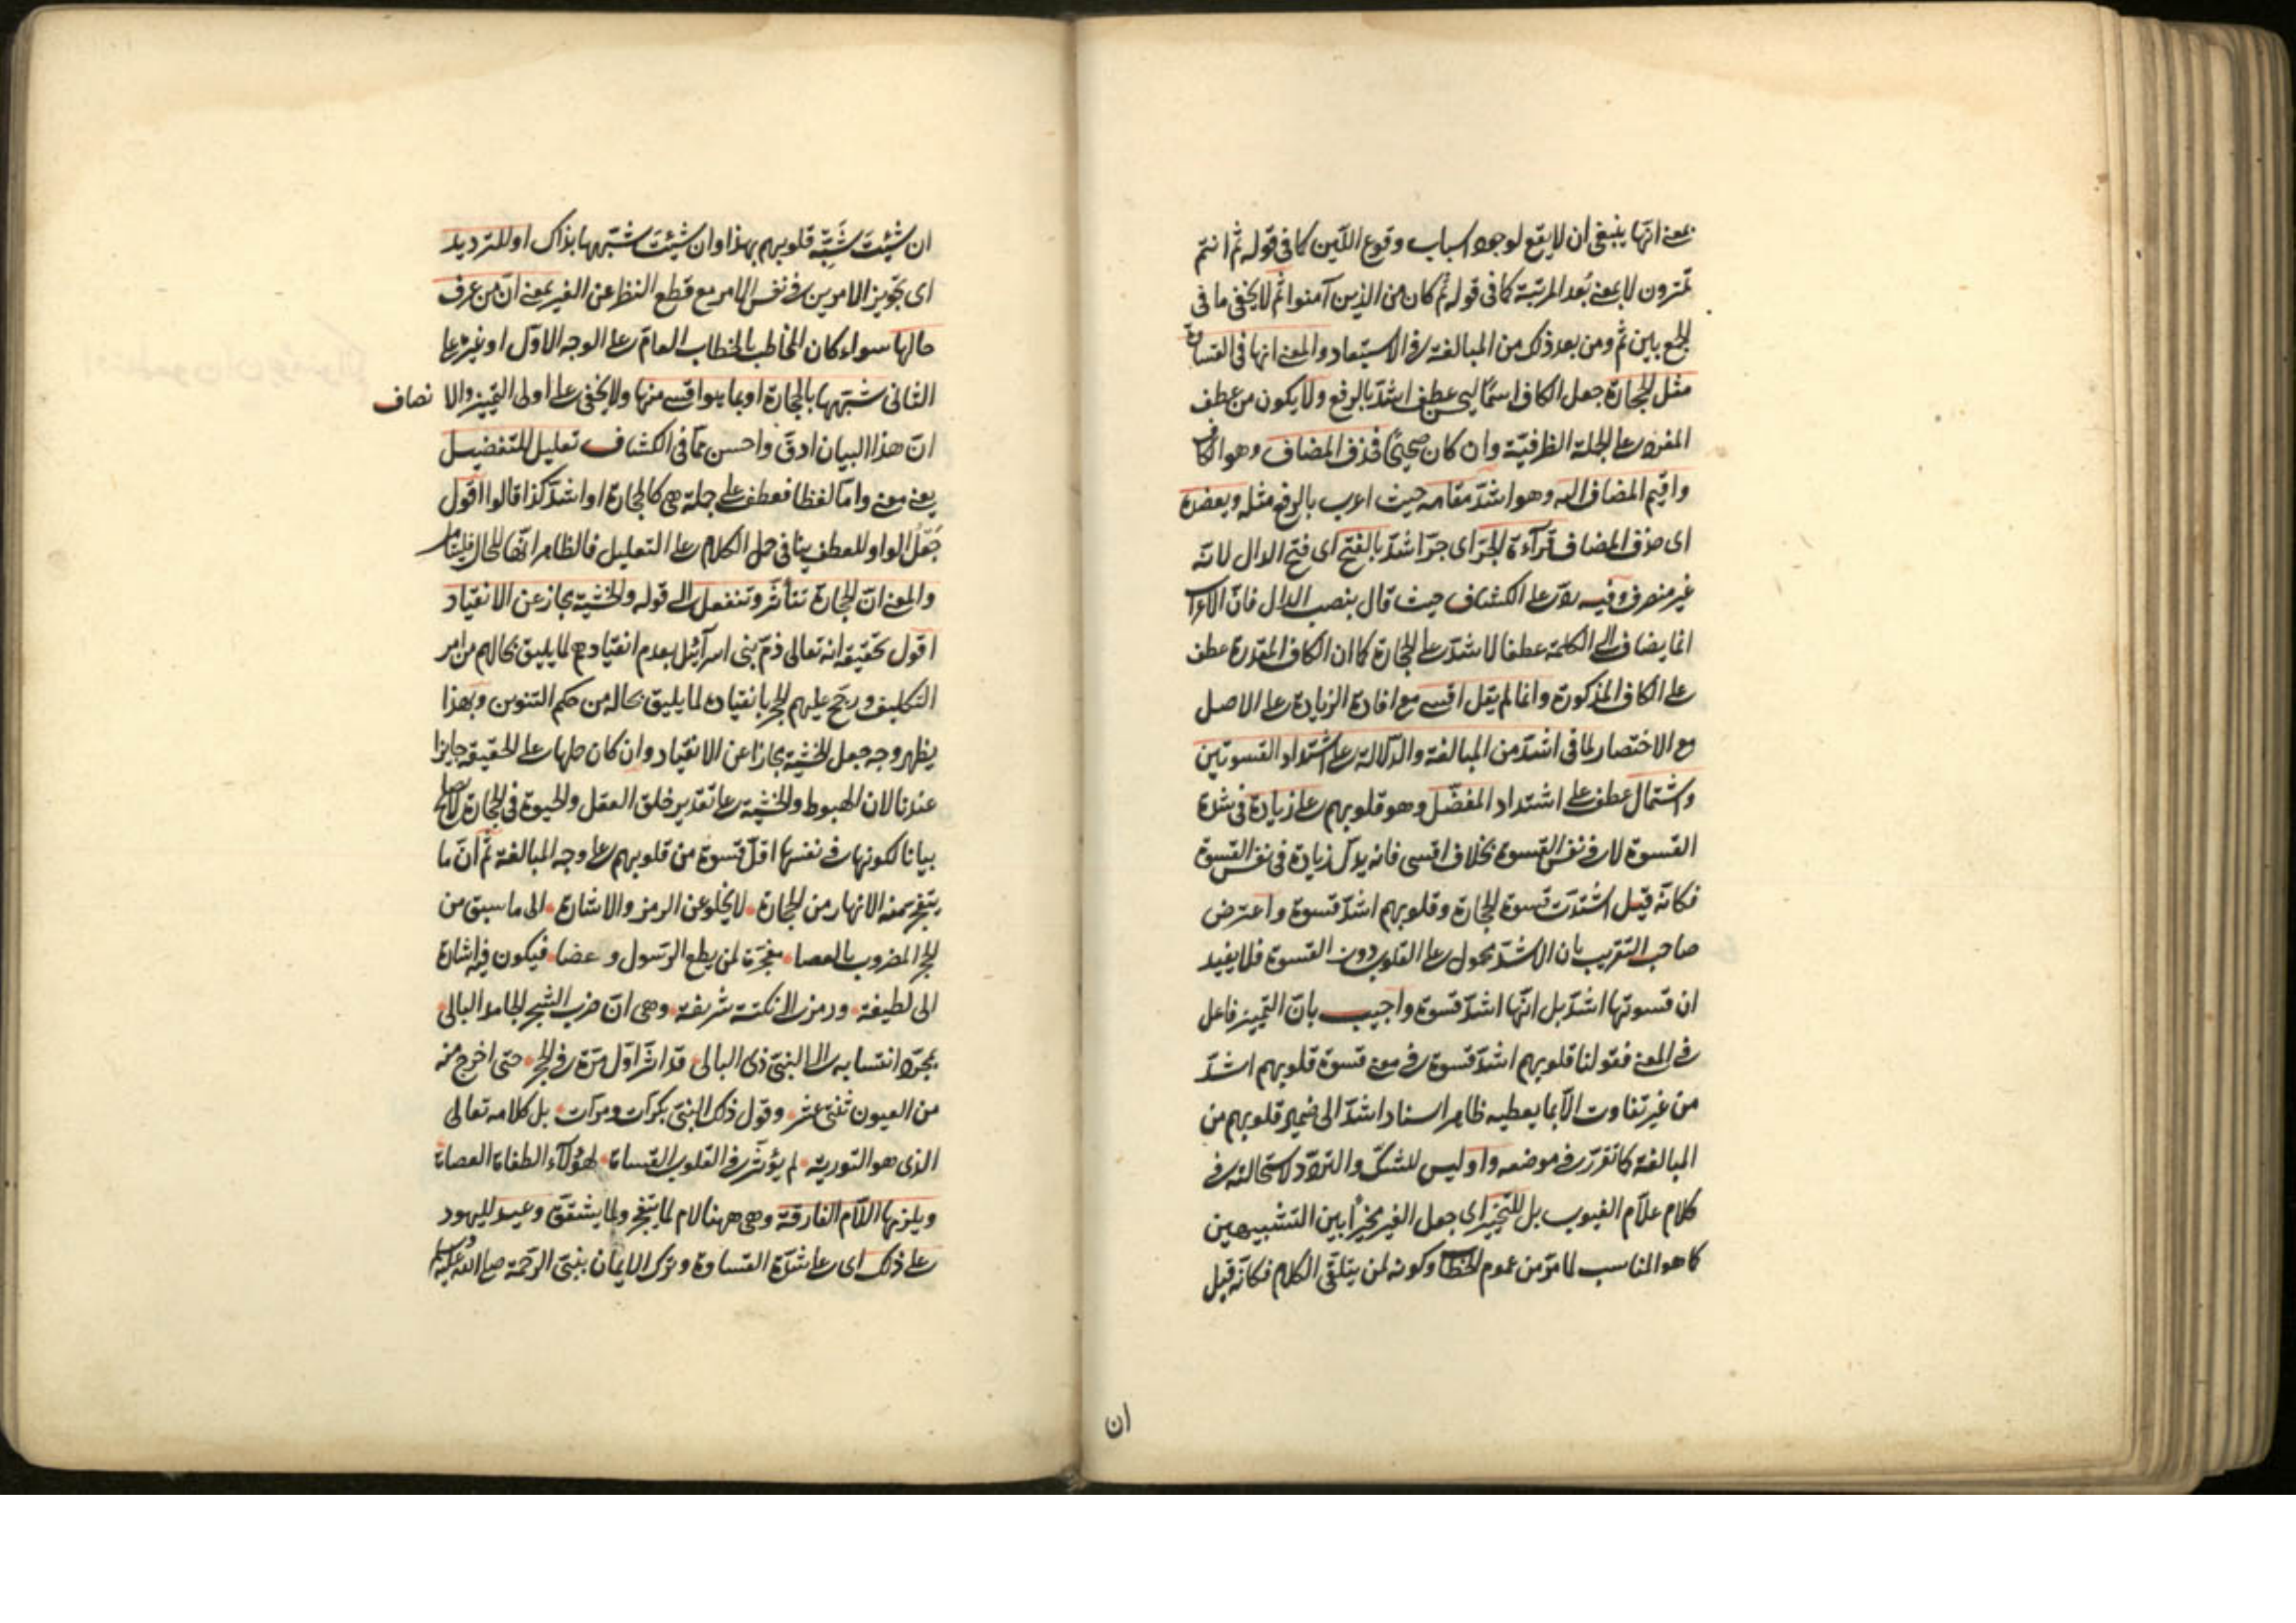 بمعنى انها ينبغى ان لا يقع لوجود اسباب وقوع اللين كما فى قوله ثم انتم
تمترون لا بمعنى بُعد المرتبة كما فى قوله ثم كان من الذين آمنوا ثم لا يخفى ما فى
الجمع بين ثم ومن بعد ذلك من المبالغة فى الاستبعاد والمعنى انها فى القساوة
مثل الحجارة جعل الكاف اسمًا ليحسن عطف اشدّ بالرفع ولا يكون من عطف
المفرد على الجملة الظرفيّة وان كان صحيحًا فحذف المضاف وهو الكاف
واقيم المضاف اليه وهو اشدّ مقامه حيث اعرب بالرفع مثله ويعضده
اى حذف المضاف قرآءة الجرّ اى جرّ اشدّ بالفتح اى فتح الدال لانّه
غير منصرف وفيه ردّ على الكشاف حيث قال بنصب الدال فانّ الاعراب
انما يضاف الى الكلمة عطفا لاشدّ على الحجارة كما ان الكاف المقدرة عطف
على الكاف المذكورة وانما لم يقل اقسى مع افادة الزيادة على الاصل
مع الاختصار لما فى اشدّ من المبالغة والدّلالة على اشتداد القسوتين
واشتمال عطف على اشتداد المفضّل وهو قلوبهم على زيادة فى شدة
القسوة لا فى نفس القسوة بخلاف اقسى فانه يدلّ زيادة فى نفس القسوة
فكانّه قيل اشتدّت قسوة الحجارة وقلوبهم اشدّ قسوة واعترض
صاحب التقريب بان الاشدّ محمول على القلوب دون القسوة فلا يفيد
ان قسوتها اشدّ بل انّها اشدّ قسوة واجيب بانّ التمييز فاعل
فى المعنى فقولنا قلوبهم اشدّ قسوة فى معنى قسوة قلوبهم اشدّ
من غير تفاوت الّا بما يعطيه ظاهر اسناد اشدّ الى ضمير قلوبهم من
المبالغة كما تقرّر فى موضعه واو ليس للشكّ والتردّد لاستحالته فى
كلام علّام الغيوب بل للتخيير اى جعل الغير مخيّرا بين التشبيهين
كما هو المناسب لما مرّ من عموم الخطاب وكونه لمن يتلقى الكلام فكانّه قيل
ان
ان شئتَ شَبِّه قلوبهم بهذا وان شئتَ شبّهها بذاك او للترديد
اى تجويز الامرين فى نفس الامر مع قطع النظر عن الغير بمعنى انّ من عرف
حالها سواء كان المخاطب بالخطاب العامّ على الوجه الاوّل او غيره على
الثانى شبّهها بالحجارة او بما هو اقسى منها ولا يخفى على اولى التمييز والا نصاف
انّ هذا البيان ادقّ واحسن ممّا فى الكشاف تعليل للتفضيل
يعنى معنى وامّا لفظا فعطف على جملة هى كالحجارة او اشدّ كذا قالوا اقول
جَعْلُ الواو للعطف ينافى حمل الكلام على التعليل فالظاهر انّها للحال فليتأمل
والمعنى انّ الحجارة تتأثر وتنفعل الى قوله والخشية مجاز عن الانقياد
اقول تحقيقه انه تعالى ذمّ بنى اسرآئيل بعدم انقيادهم لما يليق بحالهم من امر
التكليف ورجّح عليهم الحجر بانقياده لما يليق بحاله من حكم التنوين وبهذا
يظهر وجه جعل الخشية مجازا عن الانقياد وان كان حملها على الحقيقة جايزا
عندنا لان الهبوط والخشية على تقدير خلق العقل والحيوة فى الحجارة لا يصلح
بيانا لكونها فى نفسها اقلّ قسوة من قلوبهم على وجه المبالغة ثمّ انّ ما
يتفجر منه الانهار من الحجارة لا يخلو عن الرمز والاشارة الى ما سبق من
الحجر المضروب بالعصا معجزة لمن يطع الرّسول و عصا فيكون فيه اشارة
الى لطيفة ورمز الى نكتة شريفة وهى انّ ضرب الشجر الجامد البالى
بمجرّد انتسابه الى النبىّ ذى البالى قد اثّر اوّل مرّة فى الحجر حتى اخرج منه
من العيون ثنتى عشر وقول ذلك النبىّ بكرّات ومرّات بل كلامه تعالى
الذى هو التورية لم يؤثّر فى القلوب القساة لهؤلآء الطغاة العصاة
ويلزمها اللّام الفارقة وهى ههنا لام لما يتفجر ولما يشقق وعيد لليهود
على ذلك اى على شدّة القساوة وترك الايمان بنبىّ الرحمة صلى الله عليه وسلم